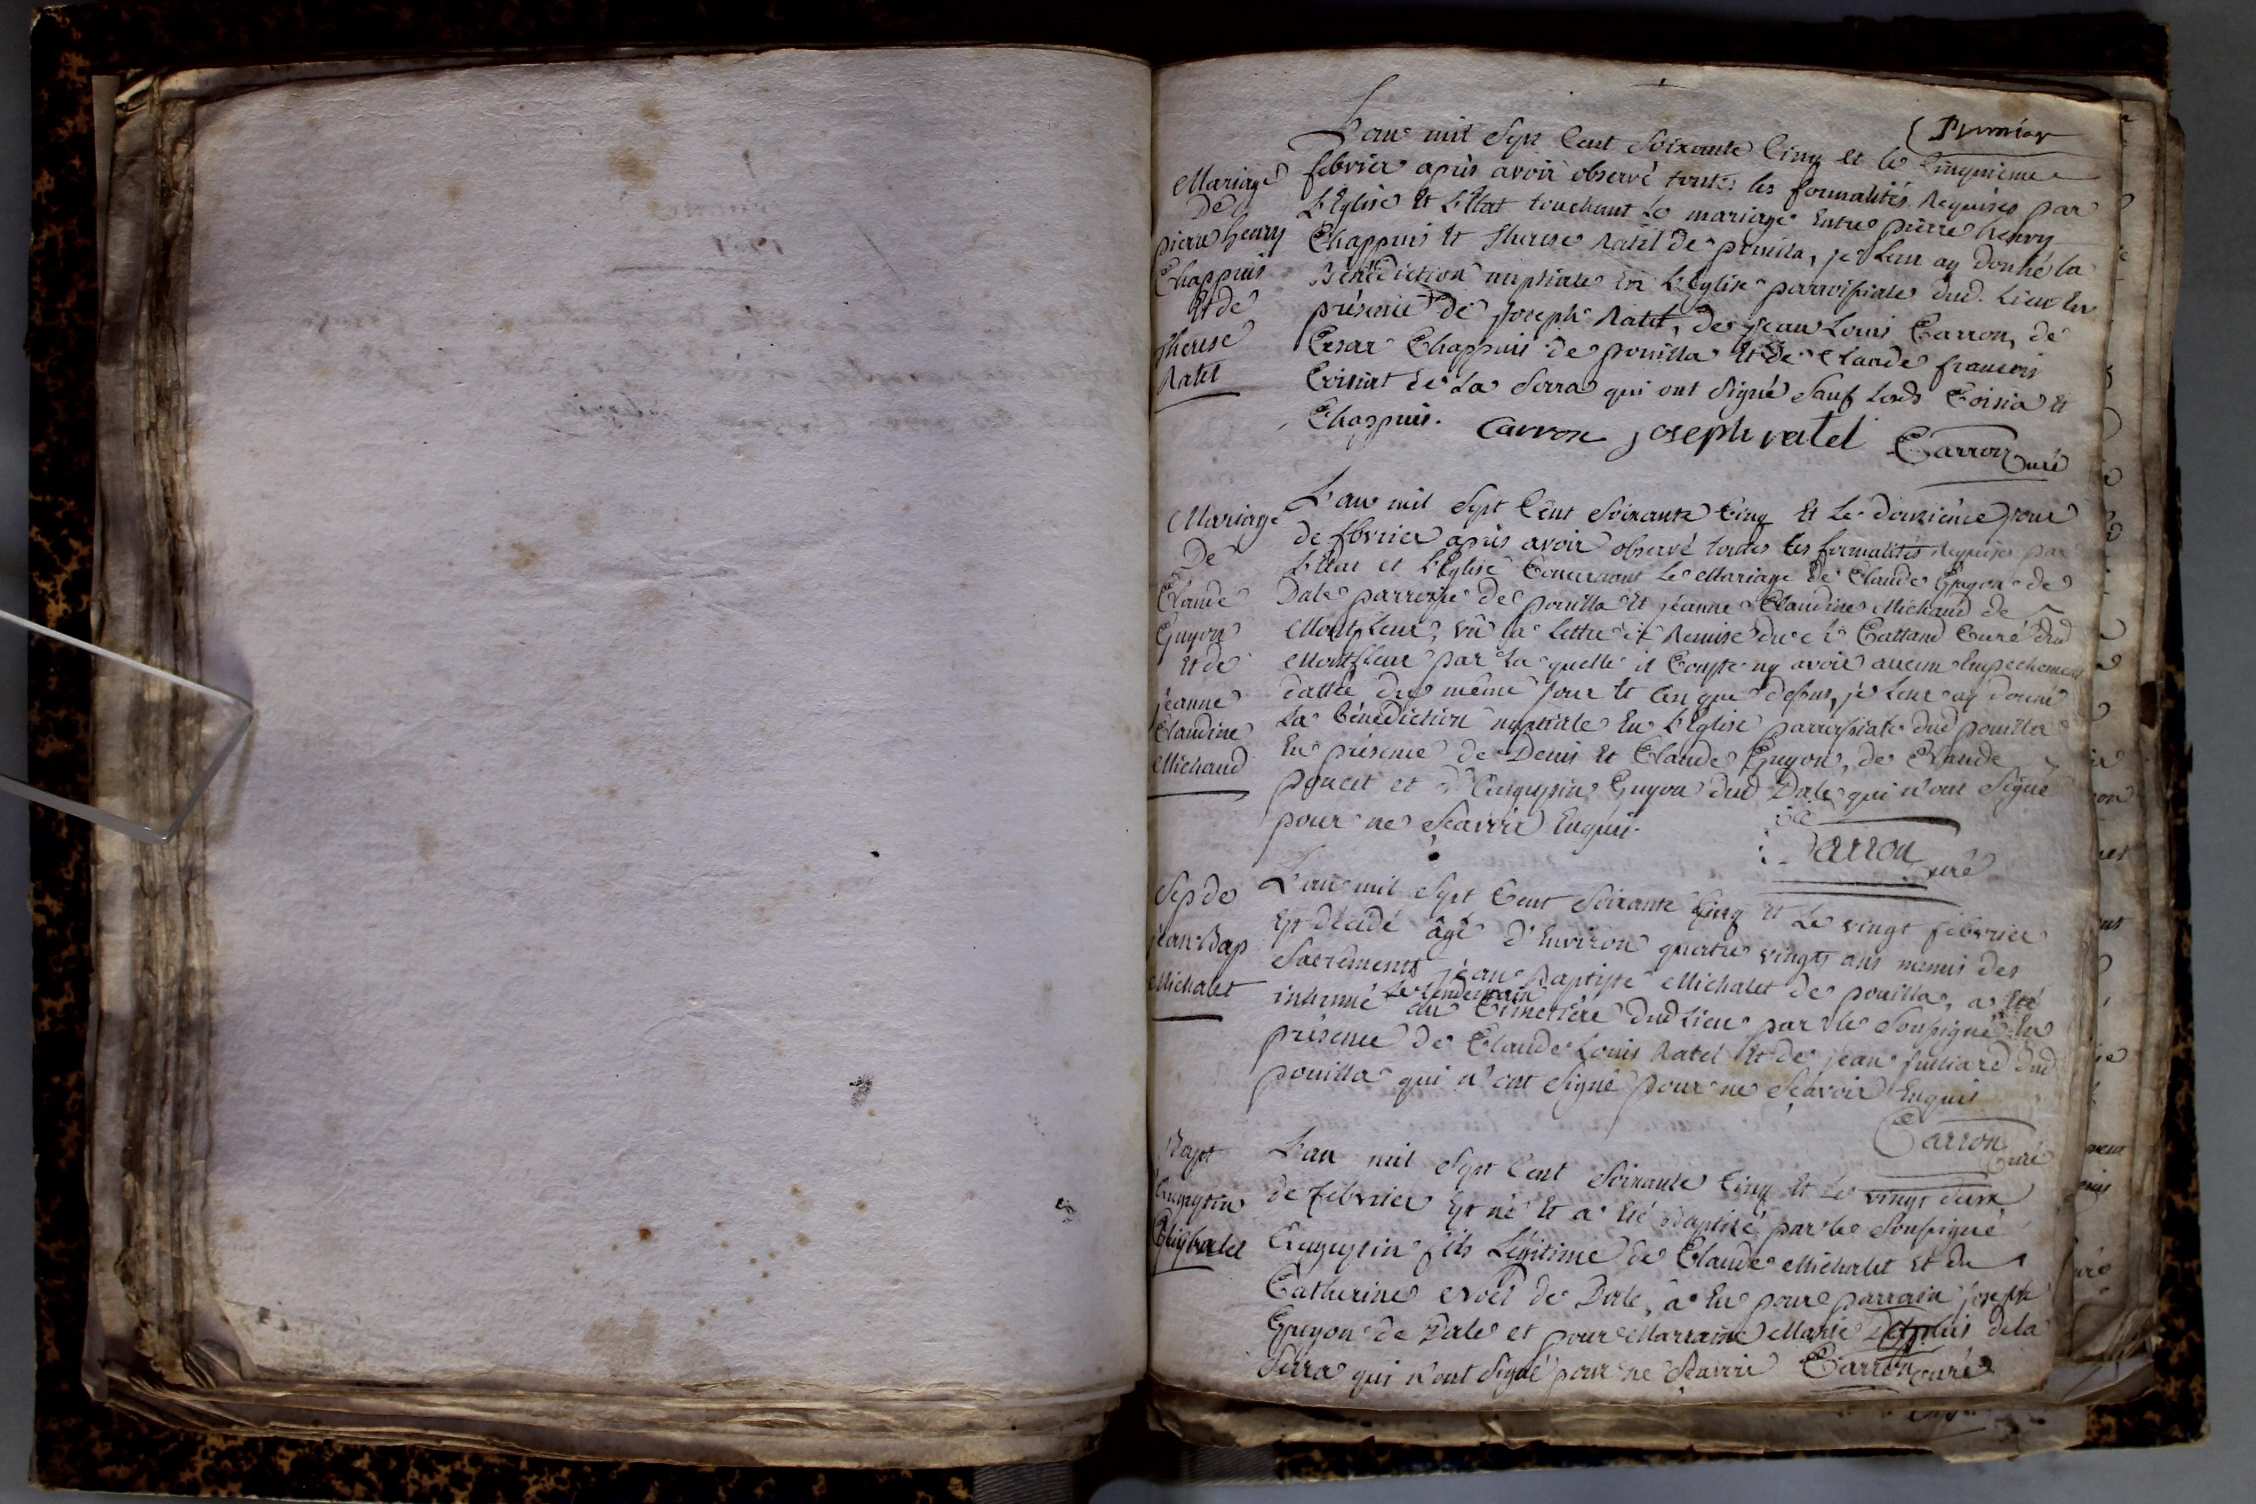 Premier
Mariage
De
pierre henry
Chappuis
Et de
Therese
Ratel
L'an mil Sept Cent Soixante Cinq et le Cinquieme
febvrier après avoir observé toutes les formalités Requises par
L'Eglise et L'Etat touchant Le mariage Entre pierre henry
Chappuis et Therese Ratel de pouilla, je leur ay donné la
Bénédiction nuptiale En L'Eglise parroissiale dud. Lieu En
présence de Joseph Ratel, de jean Louis Carron, de
Cesar Chappuis de pouilla et de Claude francois
Coisiat de La Serra qui ont Signé Sauf Lesds Coisia et
Chappuis. Carron joseph ratel Carron Curé
Mariage
De
Claude
Guyon
et de
jeanne
Claudine
Michaud
L'an mil Sept Cent Soixante Cinq Et Le douzième jour
de febvrier après avoir observé toutes les formalités Requises par
L'Etat et L'Eglise Concernant Le Mariage de Claude Guyon de
Dale parroisse de pouilla Et jeanne Claudine Michaud de
Montfleur, vû la lettre de Remise du Sr Gattand Curé dud
Montfleur par La quelle il Conste ny avoir aucun Empechement
dattée du même jour Et an que dessus, je leur ay donné
La Bénédiction nuptiale En L'Eglise parroissiale dud pouilla
En présence de Denis Et Claude Guyon, de Claude
poncet et d'Augustin Guyon dud Dale qui n'ont Signé
pour ne Scavoir Enquis.
Carron Curé
Sep de
jean Bap
Michalet
L'an mil Sept Cent Soixante Cinq Et Le vingt febvrier
Est décédé âgé d'Environ quatre vingts ans munis des
Sacrements jean Baptiste Michalet de pouilla, a été
inhumé Le lendemain au Cimetière dud Lieu par le Soussigné En
présence de Claude Louis Ratel Et de jean Julliard dud
pouilla qui n'ont Signé pour ne Scavoir Enquis
Carron Curé
Bapt
Augustin
Michalet
L'an mil Sept Cent Soixante Cinq Et Le vingt deux
de febvrier Est né Et a été Baptisé par le Soussigné
Augustin fils Légitime de Claude Michalet Et de
Catherine Noël de Dale, a Eu pour parrain joseph
Guyon de Dale et pour Marraine Marie de la
Serra qui n'ont Signé pour ne Scavoir Carron curé